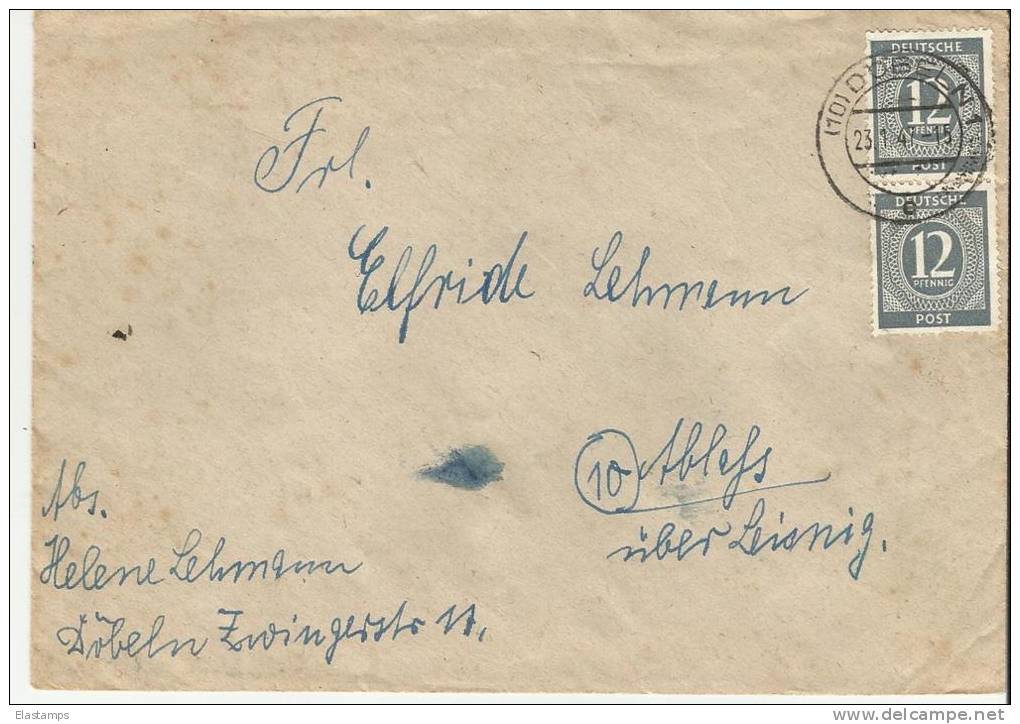 DEUTSCHE
12
PFENNIG
POST
(10) DÖBELN 1
23.1.47-15
e
DEUTSCHE
12
PFENNIG
POST
Frl.
Elfride Lehmann
10 Ableſs
über Leisnig.
Abs.
Helene Lehmann
Döbeln Zwingerstr 11.
Elastamps
www.delcampe.net